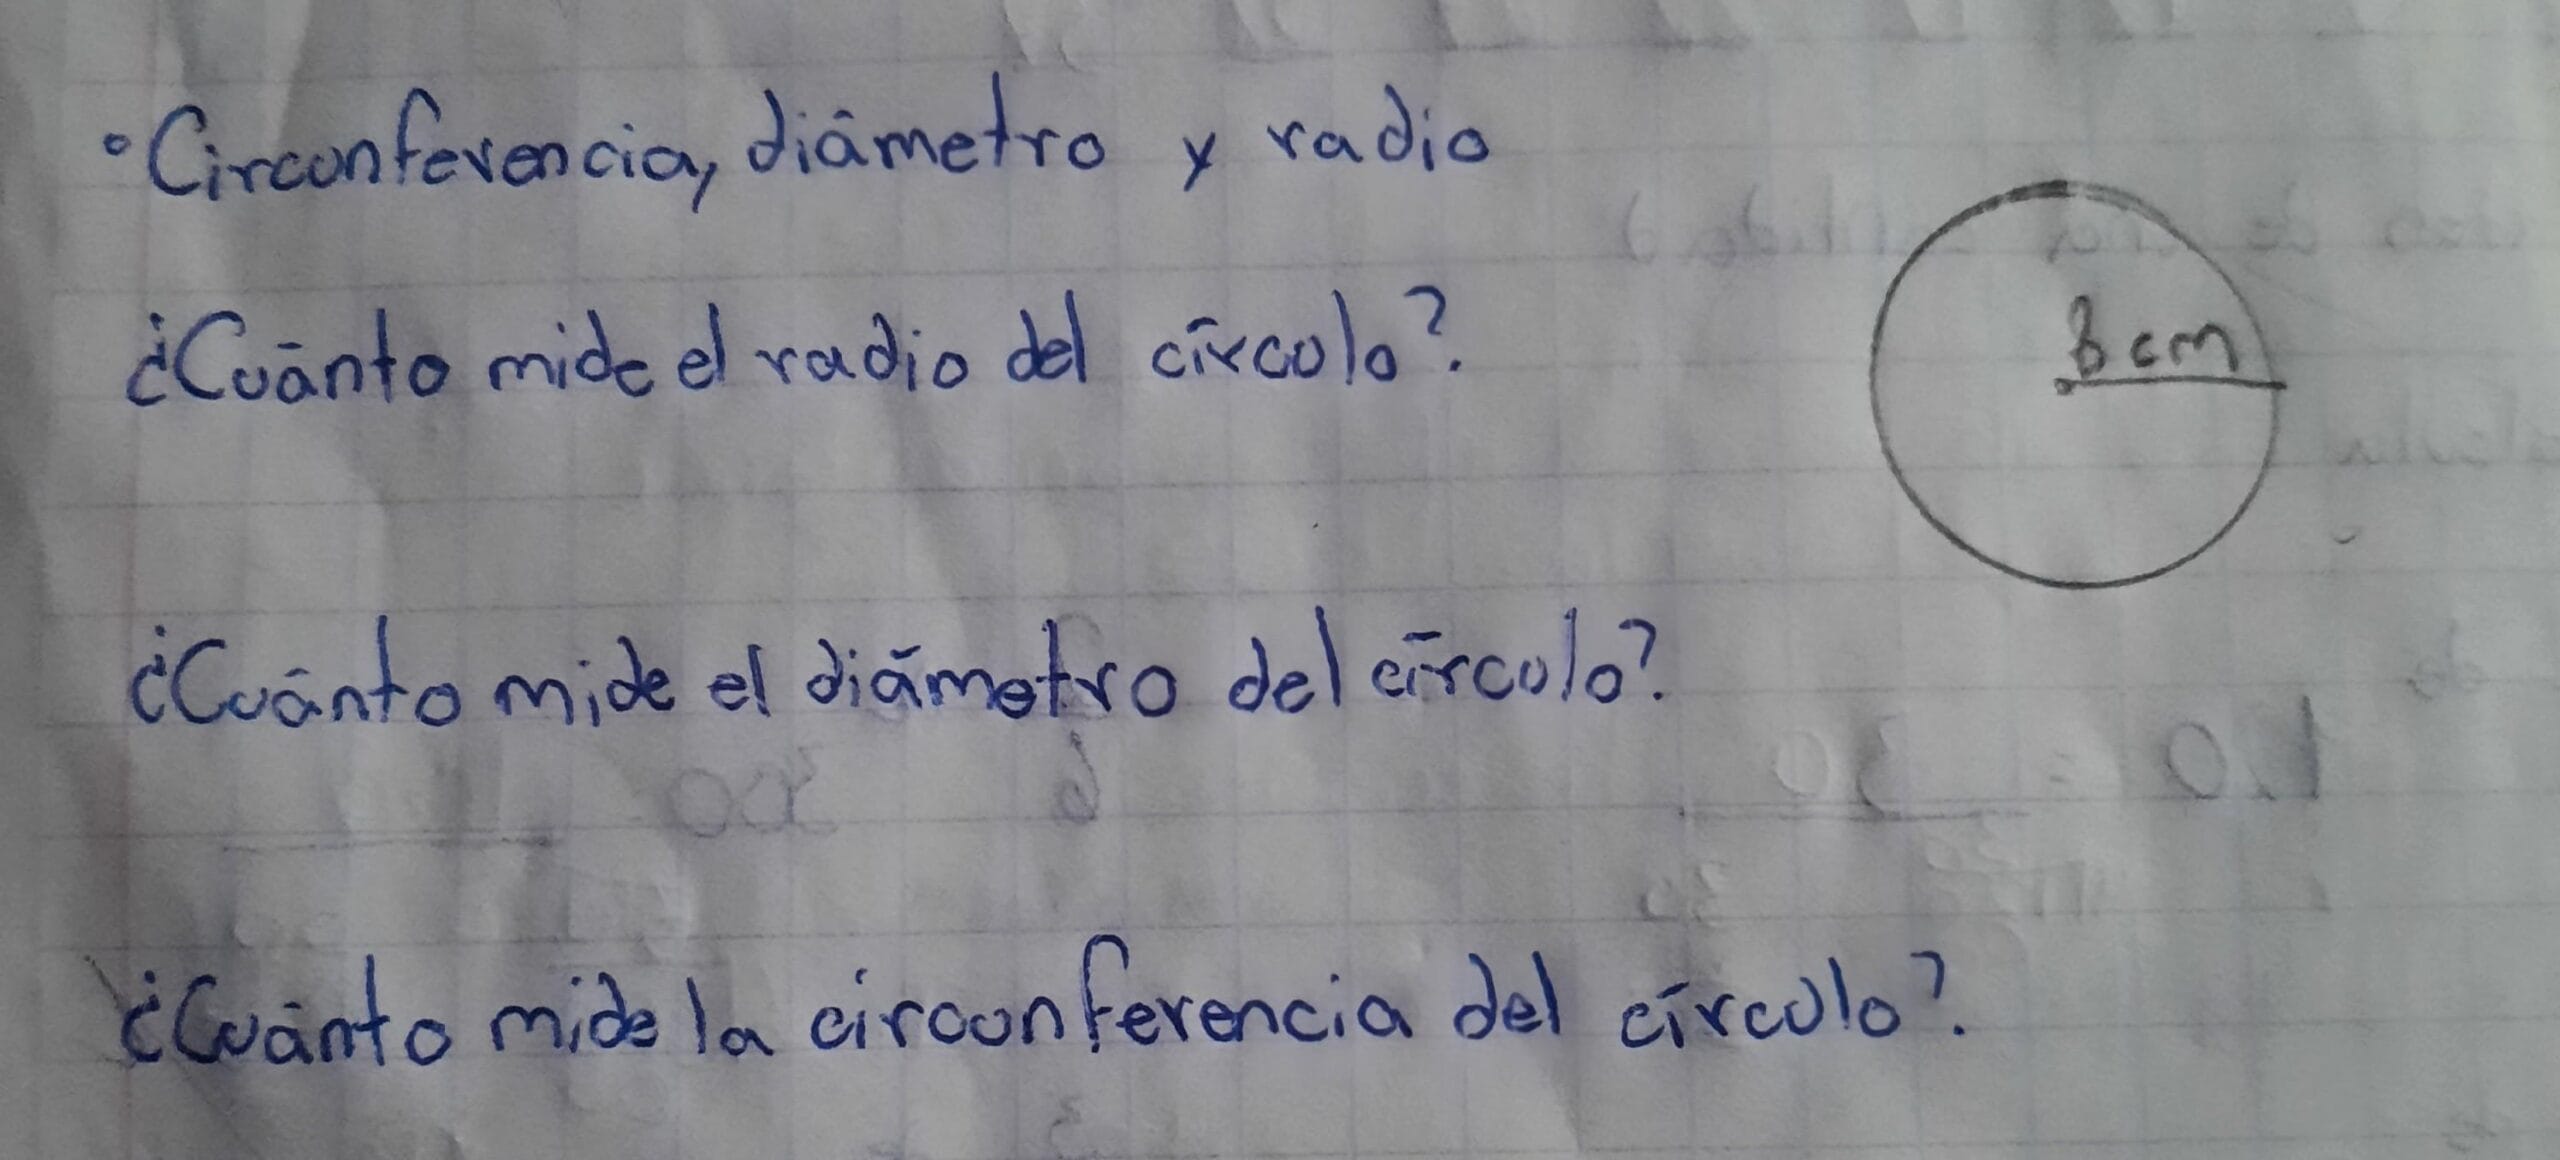 ° Circunferencia, diámetro y radio
¿Cuánto mide el radio del círculo?
8 cm
¿Cuánto mide el diámetro del círculo?
¿Cuánto mide la circunferencia del círculo?